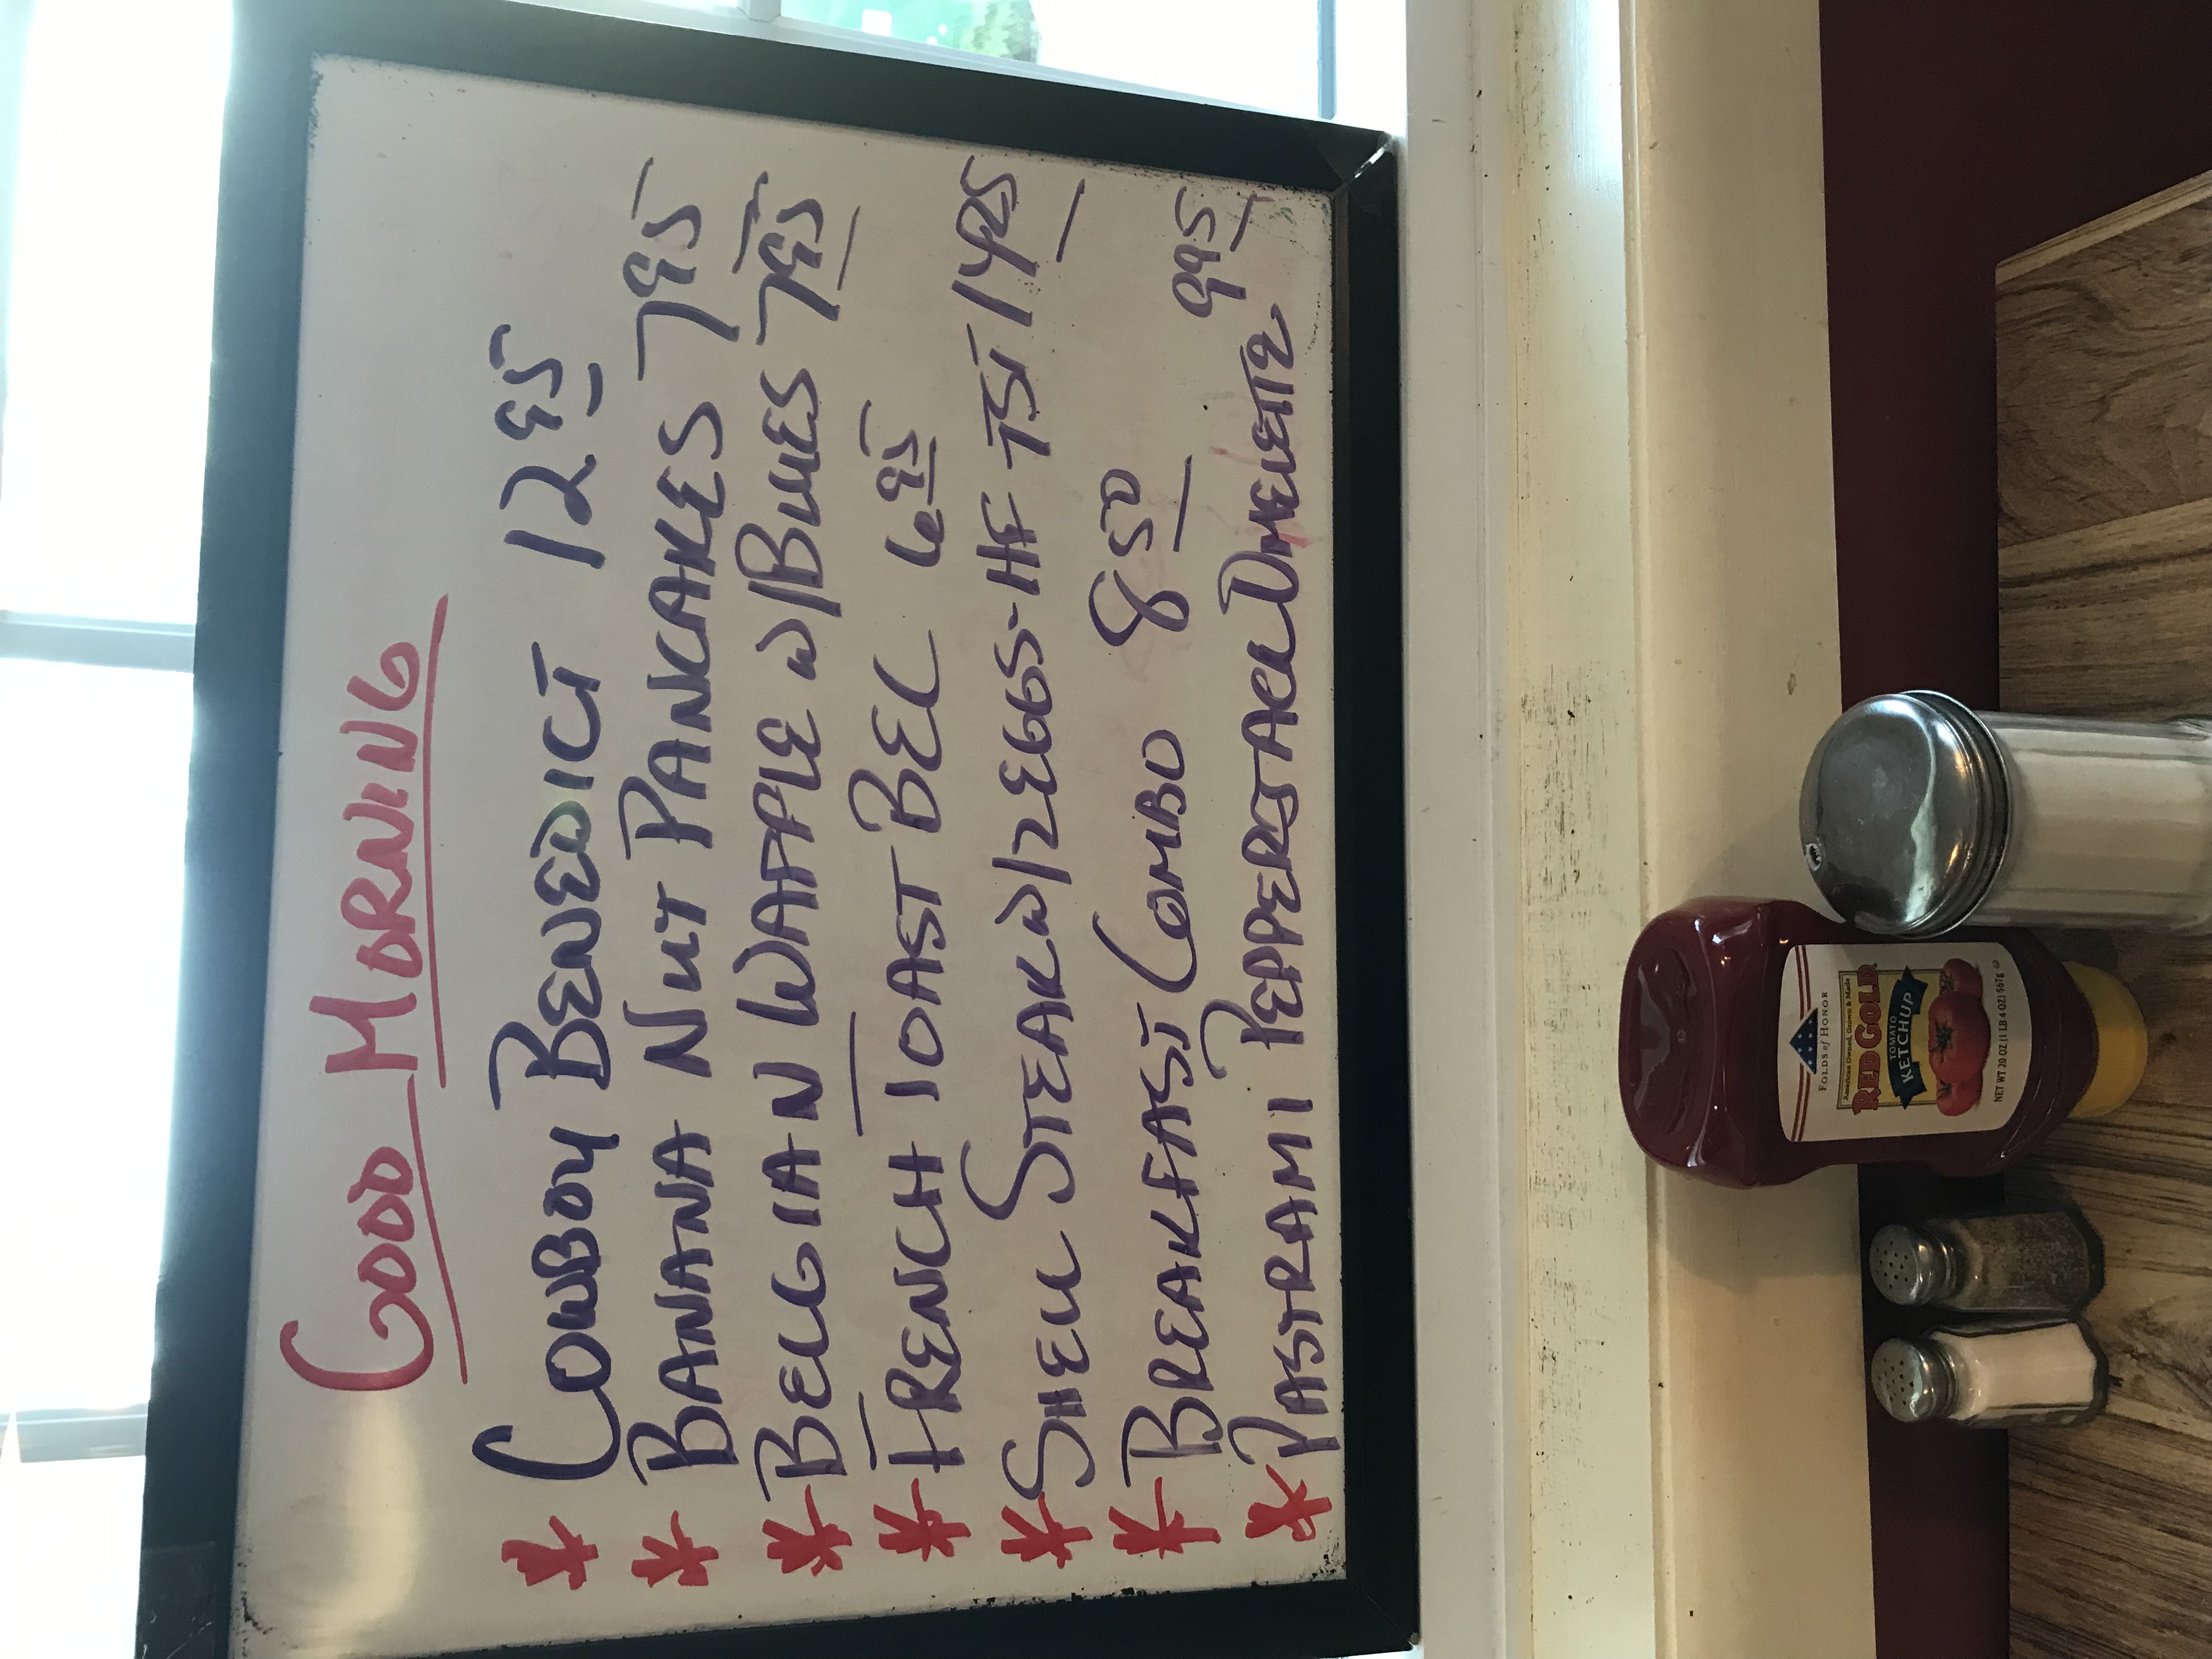 GOOD MORNING
* COWBOY BENEDICT 12 95
* BANANA NUT PANCAKES 7 95
* BELGIAN WAFFLE W/BLUES 7 95
* FRENCH TOAST BEC 6 95
* SHELL STEAK W/2 EGGS-HF-TST 14 95
* BREAKFAST COMBO 8 50
* PASTRAMI PEPPERJACK OMELETTE 9 95
FOLDS of HONOR
American Owned, Grown & Made
RED GOLD
TOMATO
KETCHUP
NET WT 20 OZ (1 LB 4 OZ) 567g